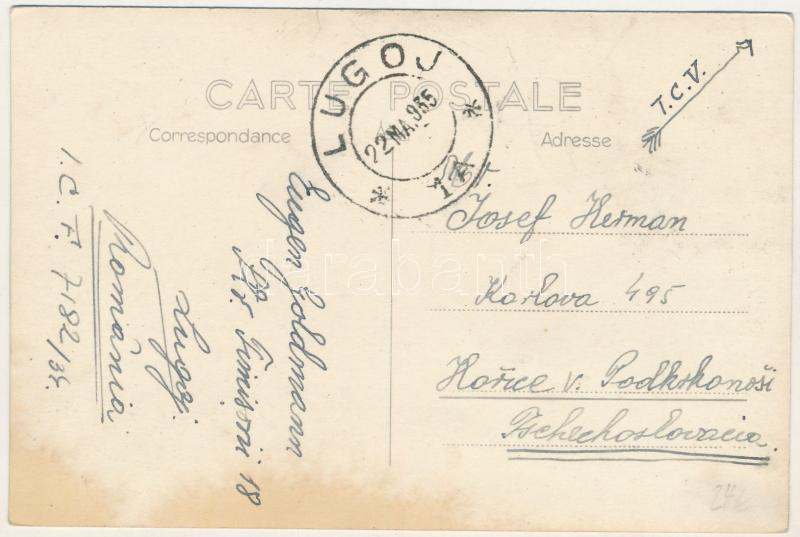 CARTE POSTALE
Correspondance
Adresse
LUGOJ
22 MA. 935
* 1 *
T.C.V.
Josef Herman
Karlova 495
Hořice v. Podkrkonoši
Tschechoslovacia.
Eugen Goldmann
Str. Timisorii 18
Lugoj.
România
I.C.F. 7182/35.
darabanth